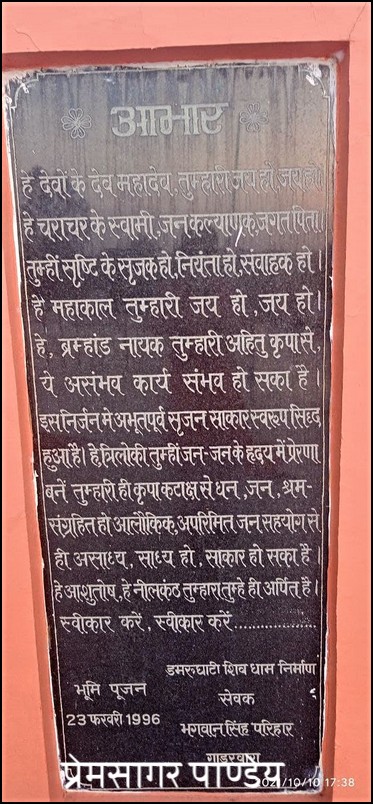 आभार
हे देवों के देव महादेव, तुम्हारी जय हो, जय हो।
हे चराचर के स्वामी, जन कल्याणक, जगतपिता
तुम्हीं सृष्टि के सृजक हो, नियंता हो, संवाहक हो।
हे महाकाल तुम्हारी जय हो, जय हो।
हे, ब्रम्हांड नायक तुम्हारी अहितु कृपा से,
ये असंभव कार्य संभव हो सका है।
इस निर्जन मे अभूतपूर्व सृजन साकार स्वरूप सिध्द
हुआ है। हे त्रिलोकी तुम्हीं जन-जन के हृदय में प्रेरणा
बनें तुम्हारी ही कृपा कटाक्ष से धन, जन, श्रम-
संग्रहित हो आलौकिक, अपरिमित जन सहयोग से
ही असाध्य, साध्य हो, साकार हो सका है।
हे आशुतोष, हे नीलकंठ तुम्हारा तुम्हे ही अर्पित है।
स्वीकार करें, स्वीकार करें..................
डमरुघाटी शिव धाम निर्माण
भूमि पूजन सेवक
23 फरवरी 1996 भगवान सिंह परिहार
गाडरवारा
प्रेमसागर पाण्डेय
2021/10/10 17:38